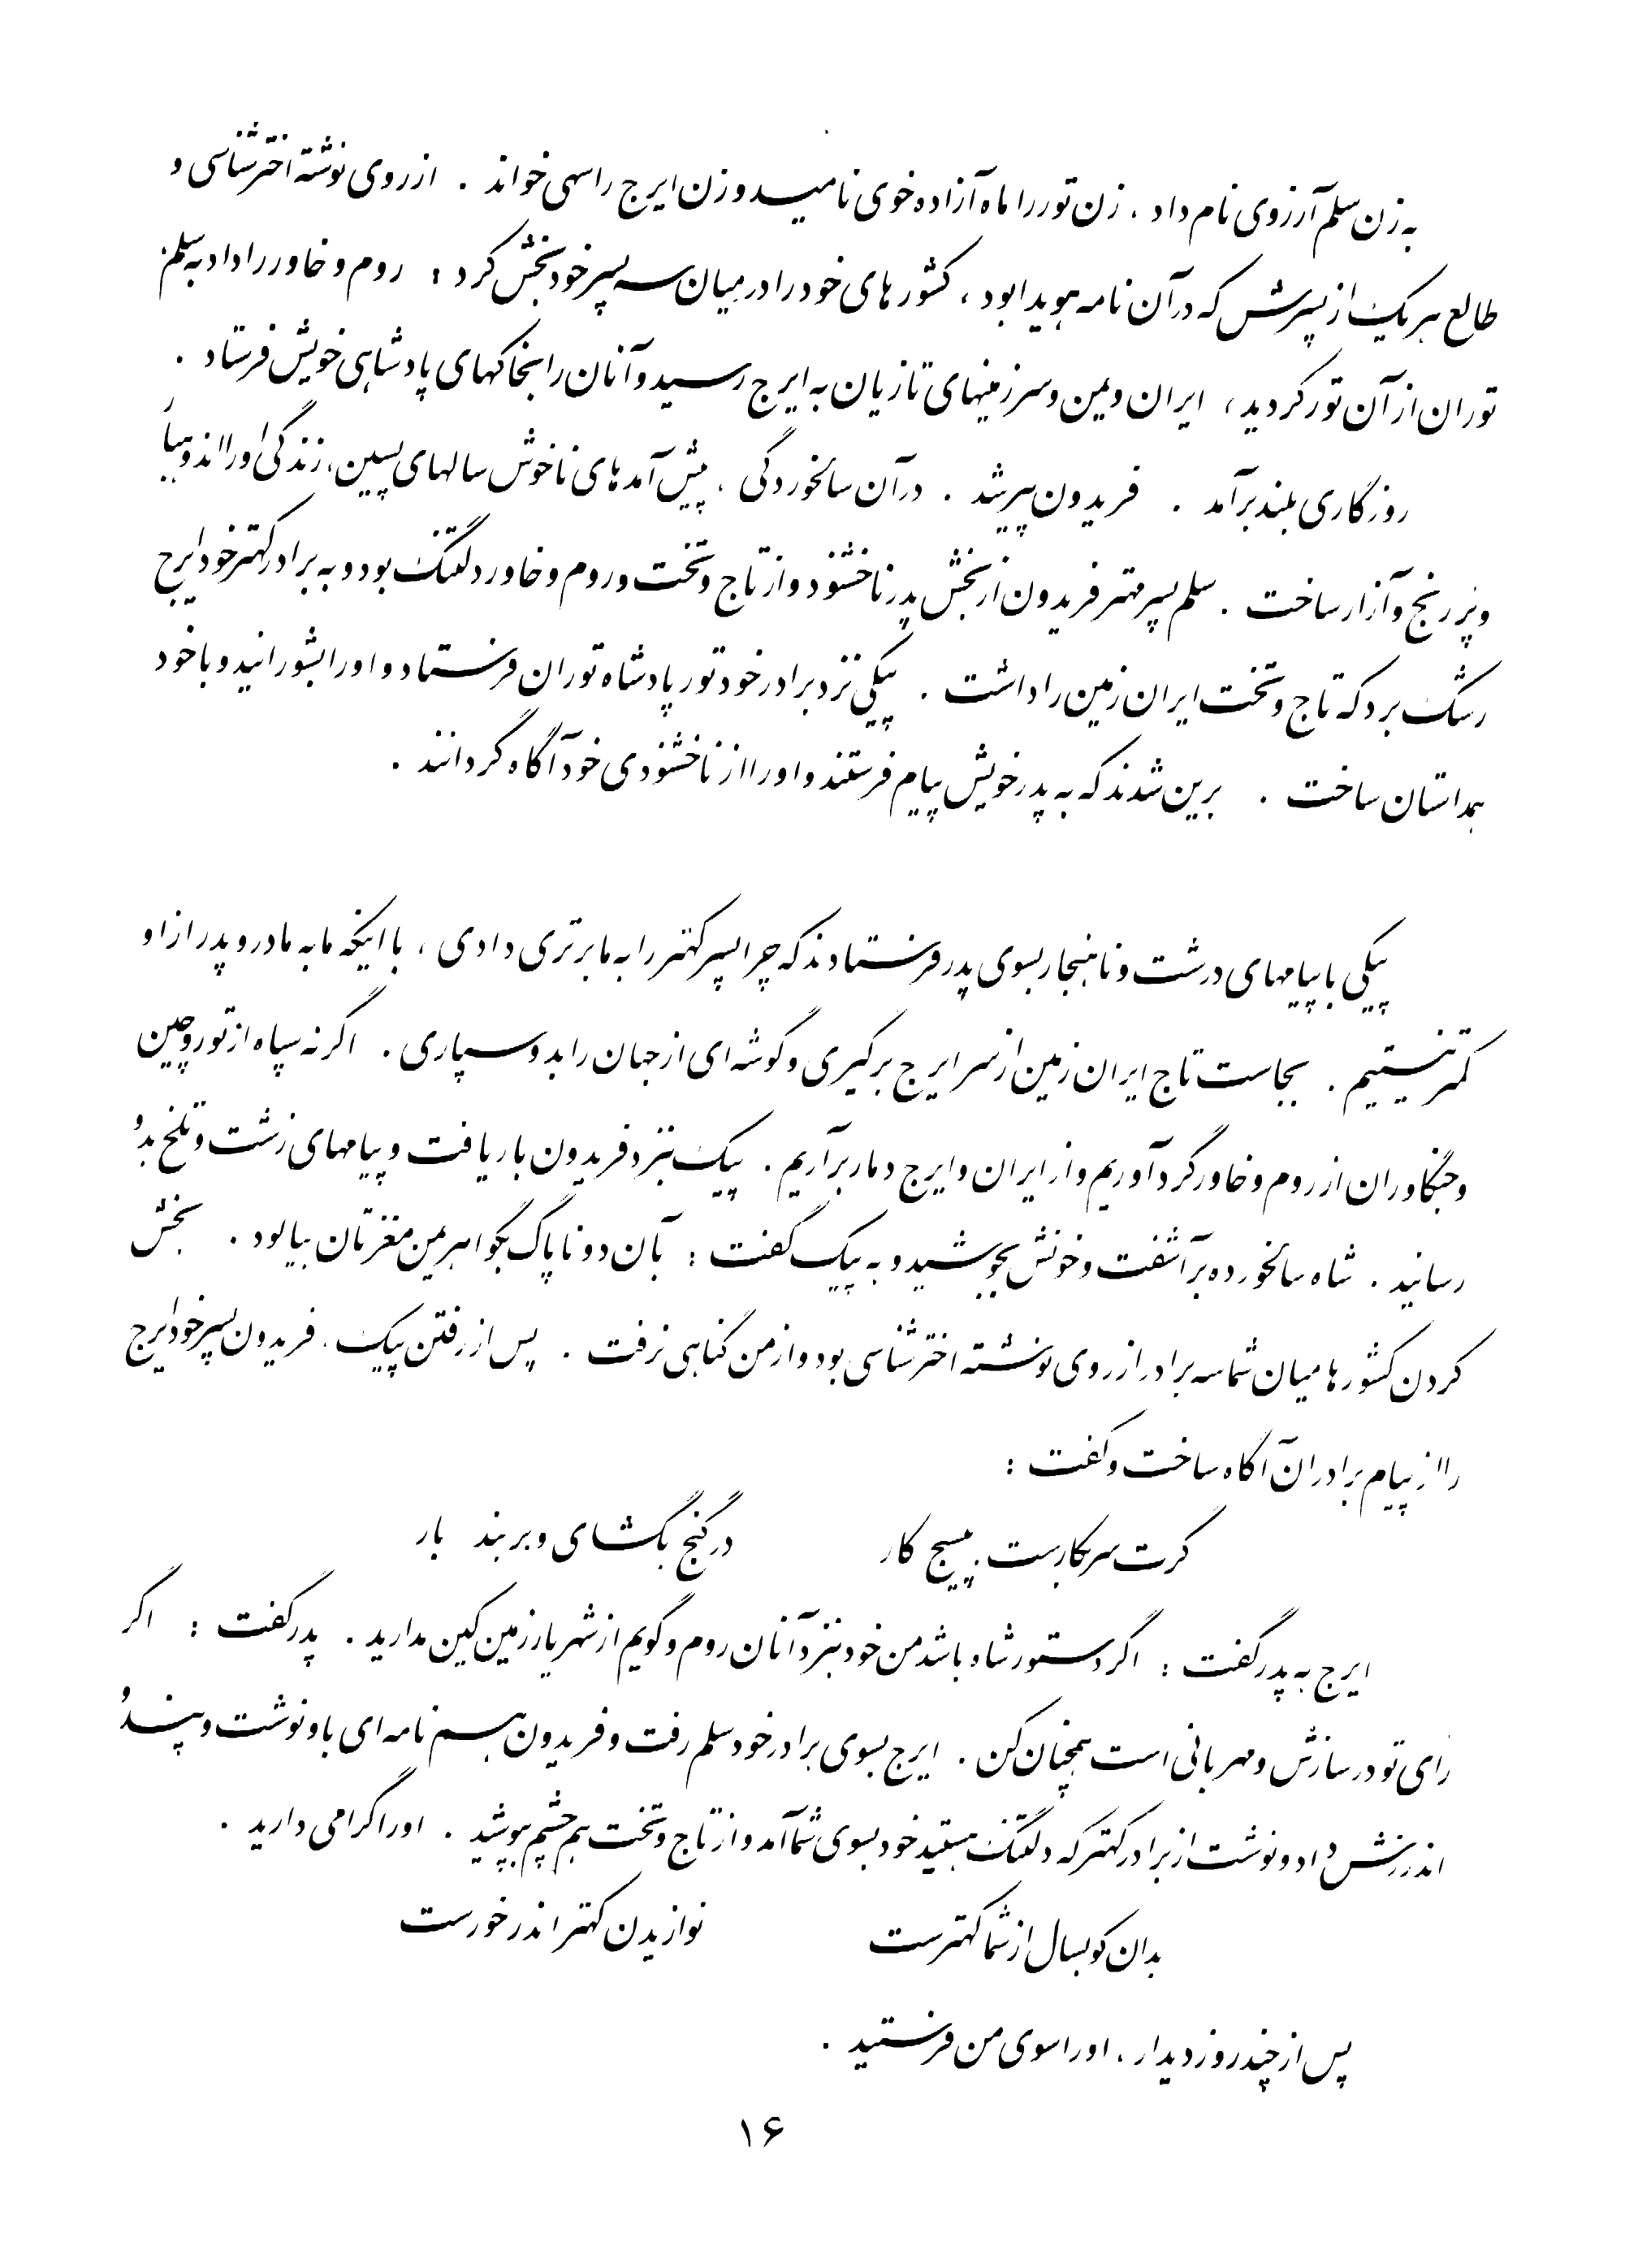 به زن سلم آرزوی نام داد ، زن تور را ماه آزاده خوی نامید و زن ایرج را سهی خواند . از روی نوشتهٔ اخترشناسی و
طالع هر یک از پسرش که در آن نامه هویدا بود ، کشورهای خود را در میان سه پسر خود بخش کرد : روم و خاور را داد به سلم .
توران از آن تور گردید ، ایران و یمن و سرزمینهای تازیان به ایرج رسید و آنان را بخاکهای پادشاهی خویش فرستاد .
روزگاری بلند برآمد . فریدون پیر شد . در آن سالخوردگی ، پیش آمدهای ناخوش سالهای پسین ، زندگی او را اندوهبار
و پر رنج و آزار ساخت . سلم پسر مهتر فریدون از بخش پدر ناخشنود و از تاج و تخت و روم و خاور دلتنگ بود و به برادر کهتر خود ایرج
رشک برد که تاج و تخت ایران زمین را داشت . پیکی نزد برادر خود تور پادشاه توران فرستاد و او را بشورانید و با خود
همداستان ساخت . برین شدند که به پدر خویش پیام فرستند و او را از ناخشنودی خود آگاه گردانند .
پیکی با پیامهای درشت و ناهنجار بسوی پدر فرستادند که چرا پسر کهتر را به ما برتری دادی ، با اینکه ما به مادر و پدر از او
کمتر نیستیم . بجاست تاج ایران زمین از سر ایرج برگیری و گوشه ای از جهان را بدو سپاری . اگر نه سپاه از تور و چین
و جنگاوران از روم و خاور گرد آوریم و از ایران و ایرج دمار برآریم . پیک نزد فریدون بار یافت و پیامهای زشت و تلخ بدو
رسانید . شاه سالخورده برآشفت و خونش بجوشید و به پیک گفت : بآن دو ناپاک بگو اهریمن مغزتان بیالود . بخش
کردن کشورها میان شما سه برادر از روی نوشته اخترشناسی بود و از من گناهی نرفت . پس از رفتن پیک ، فریدون پسر خود ایرج
را از پیام برادران آگاه ساخت و گفت :
گرت سر بکارست ، بپسیج کار در گنج بگشای و بربند بار
ایرج به پدر گفت : اگر دستور شاه باشد من خود بنزد آنان روم و گویم از شهریار زمین کین مدارید . پدر گفت : اگر
رای تو در سازش و مهربانی است همچنان کن . ایرج بسوی برادر خود سلم رفت و فریدون بسلم نامه ای باو نوشت و پند و
اندرزش داد و نوشت از برادر کهتر که دلتنگ هستید خود بسوی شما آمد و از تاج و تخت هم چشم بپوشید . او را گرامی دارید .
بدان کو بسال از شما کهترست نوازیدن کهتر اندر خورست
پس از چند روز دیدار ، او را سوی من فرستید .
۱۶